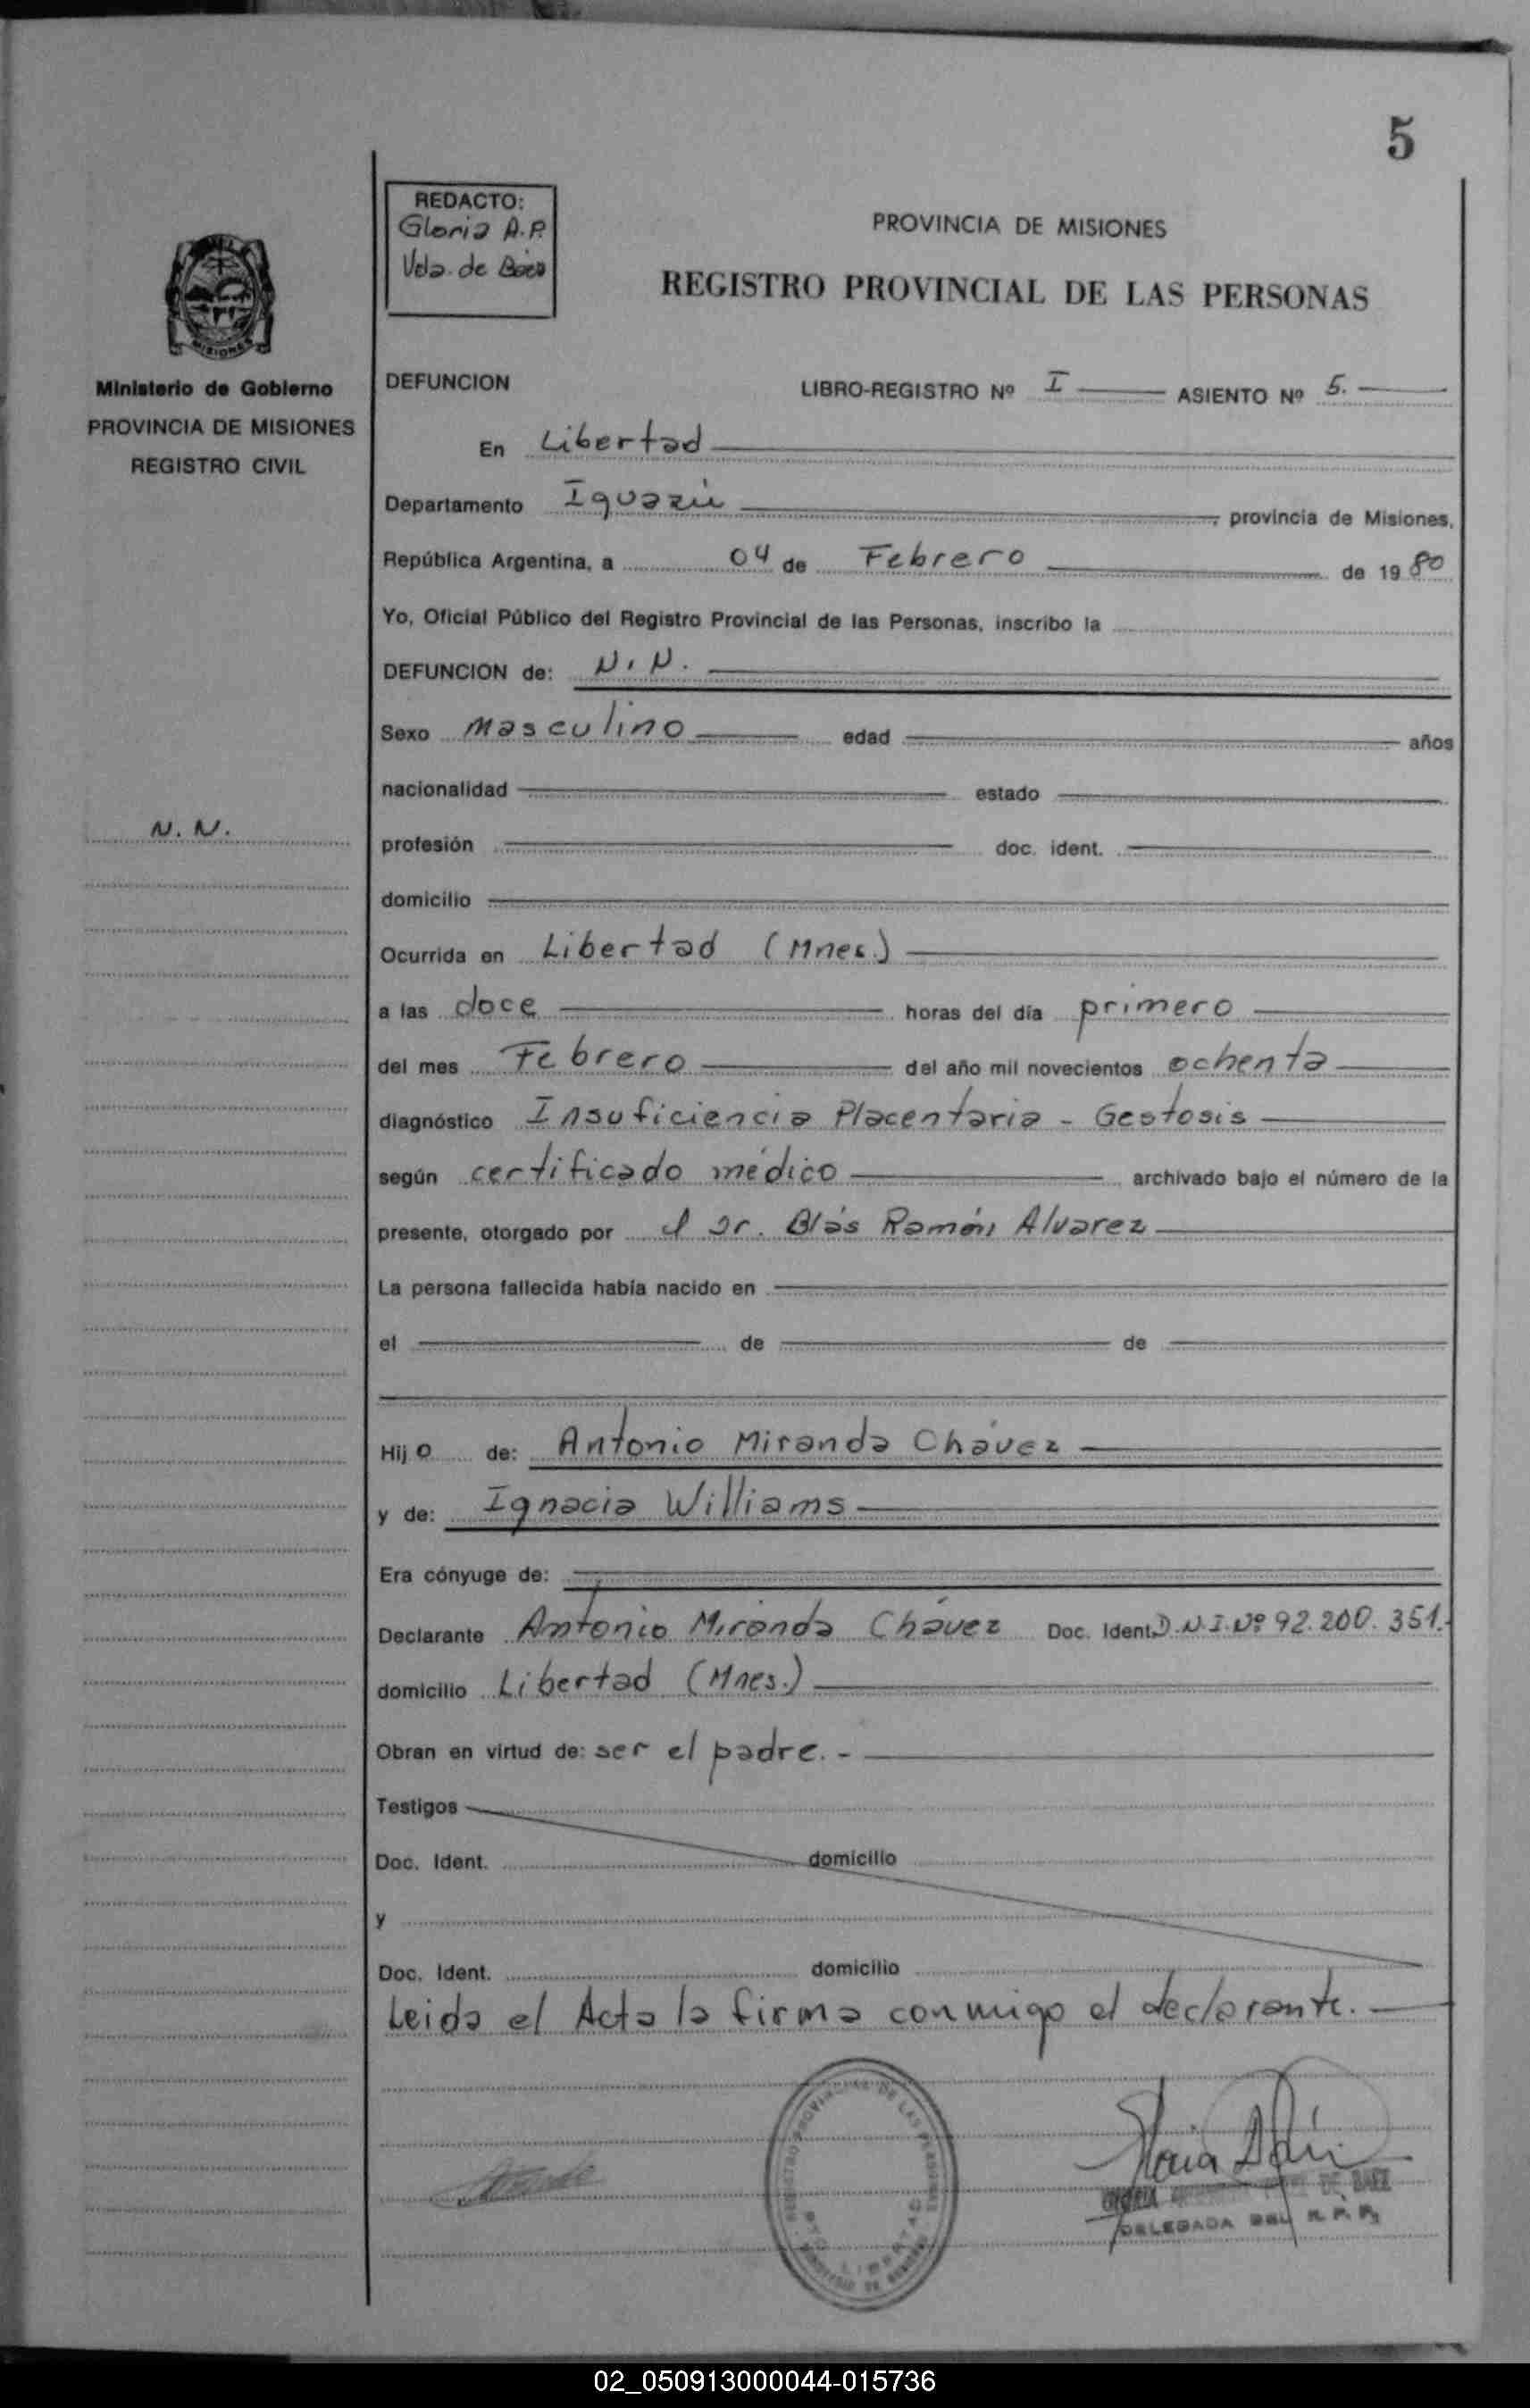 5
REDACTO:
Gloria A.P.
Vda. de Báez
PROVINCIA DE MISIONES
REGISTRO PROVINCIAL DE LAS PERSONAS
MISIONES
Ministerio de Gobierno
PROVINCIA DE MISIONES
REGISTRO CIVIL
N. N.
DEFUNCION LIBRO-REGISTRO Nº I ASIENTO Nº 5.
En Libertad
Departamento Iguazú, provincia de Misiones,
República Argentina, a 04 de Febrero de 1980
Yo, Oficial Público del Registro Provincial de las Personas, inscribo la
DEFUNCION de: N. N.
Sexo Masculino edad años
nacionalidad estado
profesión doc. ident.
domicilio
Ocurrida en Libertad (Mnes.)
a las doce horas del día primero
del mes Febrero del año mil novecientos ochenta
diagnóstico Insuficiencia Placentaria - Gestosis
según certificado médico, archivado bajo el número de la
presente, otorgado por el Dr. Blás Ramón Alvarez
La persona fallecida había nacido en
el de de
Hijo de: Antonio Miranda Chávez
y de: Ignacia Williams
Era cónyuge de:
Declarante Antonio Miranda Chávez Doc. Ident. D.N.I.Nº 92.200.351.-
domicilio Libertad (Mnes.)
Obran en virtud de: ser el padre.-
Testigos
Doc. Ident. domicilio
y
Doc. Ident. domicilio
Leida el Acta la firma conmigo el declarante.
DE BAEZ
DELEGADA DEL R. P. P.
02_050913000044-015736